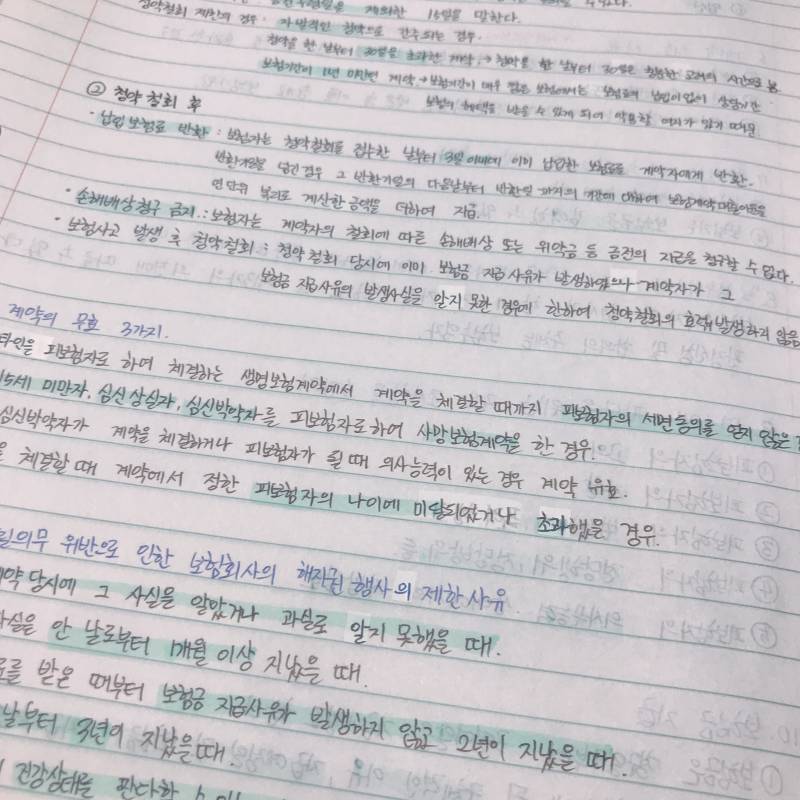 제외한 15일을 말한다.
청약철회 제한의 경우 : 자발적인 청약으로 간주되는 경우.
청약을 한 날부터 30일을 초과한 계약. → 청약을 한 날부터 30일은 충분한 고려의 시간으로 봄
보험기간이 1년 미만인 계약. → 보험기간이 매우 짧은 보험에서는 보험료의 납입없이 상당기간
보험의 혜택을 받을 수 있게 되어 악용할 여지가 있기 때문
② 청약 철회 후
· 납입보험료 반환 : 보험자는 청약철회를 접수한 날부터 3일 이내에 이미 납입한 보험료를 계약자에게 반환.
반환기일을 넘긴 경우 그 반환기일의 다음날부터 반환일 까지의 기간에 대하여 보험계약대출이율을
연단위 복리로 계산한 금액을 더하여 지급.
· 손해배상청구 금지. : 보험자는 계약자의 철회에 따른 손해배상 또는 위약금 등 금전의 지급을 청구할 수 없다.
· 보험사고 발생 후 청약철회 : 청약 철회 당시에 이미 보험금 지급사유가 발생하였으나 계약자가 그
보험금 지급사유의 발생사실을 알지 못한 경우에 한하여 청약철회의 효력 발생하지 않음
계약의 무효 3가지.
타인을 피보험자로 하여 체결하는 생명보험계약에서 계약을 체결할 때까지 피보험자의 서면동의를 얻지 않은
15세 미만자, 심신상실자, 심신박약자를 피보험자로하여 사망보험계약을 한 경우.
심신박약자가 계약을 체결하거나 피보험자가 될 때 의사능력이 있는 경우 계약 유효.
체결할 때 계약에서 정한 피보험자의 나이에 미달되었거나 초과했을 경우.
위반으로 인한 보험회사의 해지권 행사의 제한사유
당시에 그 사실을 알았거나 과실로 알지 못했을 때.
사실을 안 날로부터 1개월 이상 지났을 때.
받은 때부터 보험금 지급사유가 발생하지 않고 2년이 지났을 때.
날부터 3년이 지났을 때
건강상태를 판단할 수